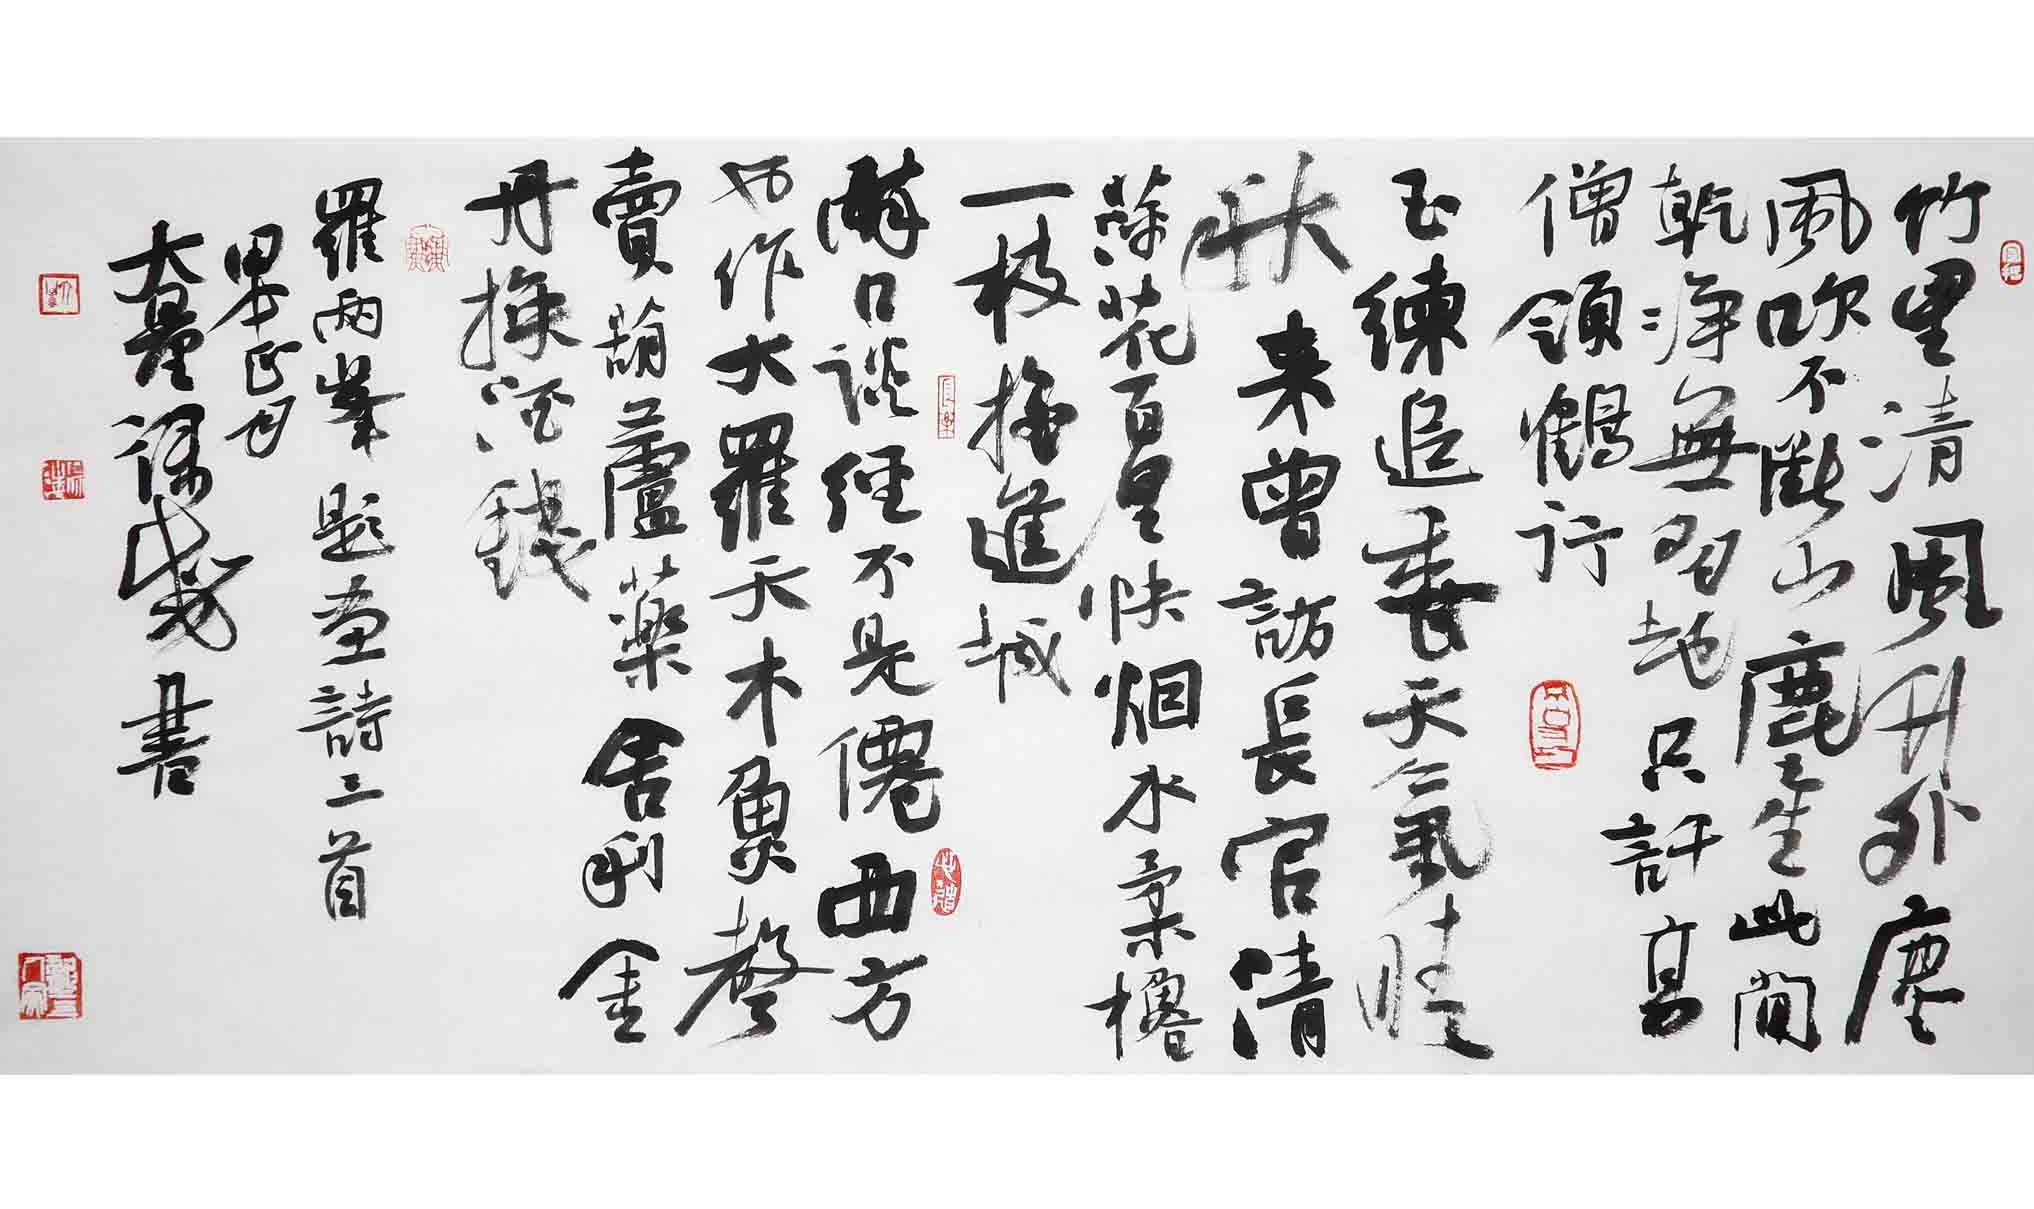 竹里清風竹外塵
風吹不斷山塵生此間
乾淨無多地只許高
僧領鶴行
玉練追香天氣晴
秋來曾訪長官清
藕花百里快烟水柔櫓
一枝搖進城
酒口談經不是僊西方
也作大羅天木魚聲
賣葫蘆藥舍利金
丹換酒錢
羅兩峯題畫詩三首
甲午正月
大量 書